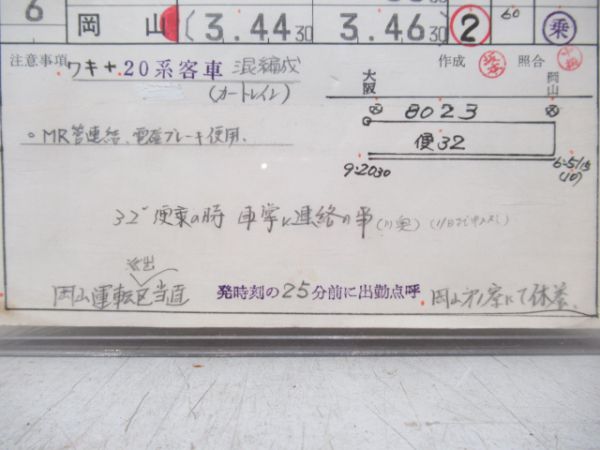 6 岡山 (3.44 30 3.46 30 ② 60 乗
注意事項 ワキ+20系客車 混編成 作成 照合
(カートレイン)
大阪 岡山
◦ MR管連結、電磁ブレーキ使用.
8023
便32
9-20 30
32ﾚ便乗の時 車掌に連絡の事
派出
岡山運転区当直 発時刻の25分前に出勤点呼. 岡山 寮にて休養.